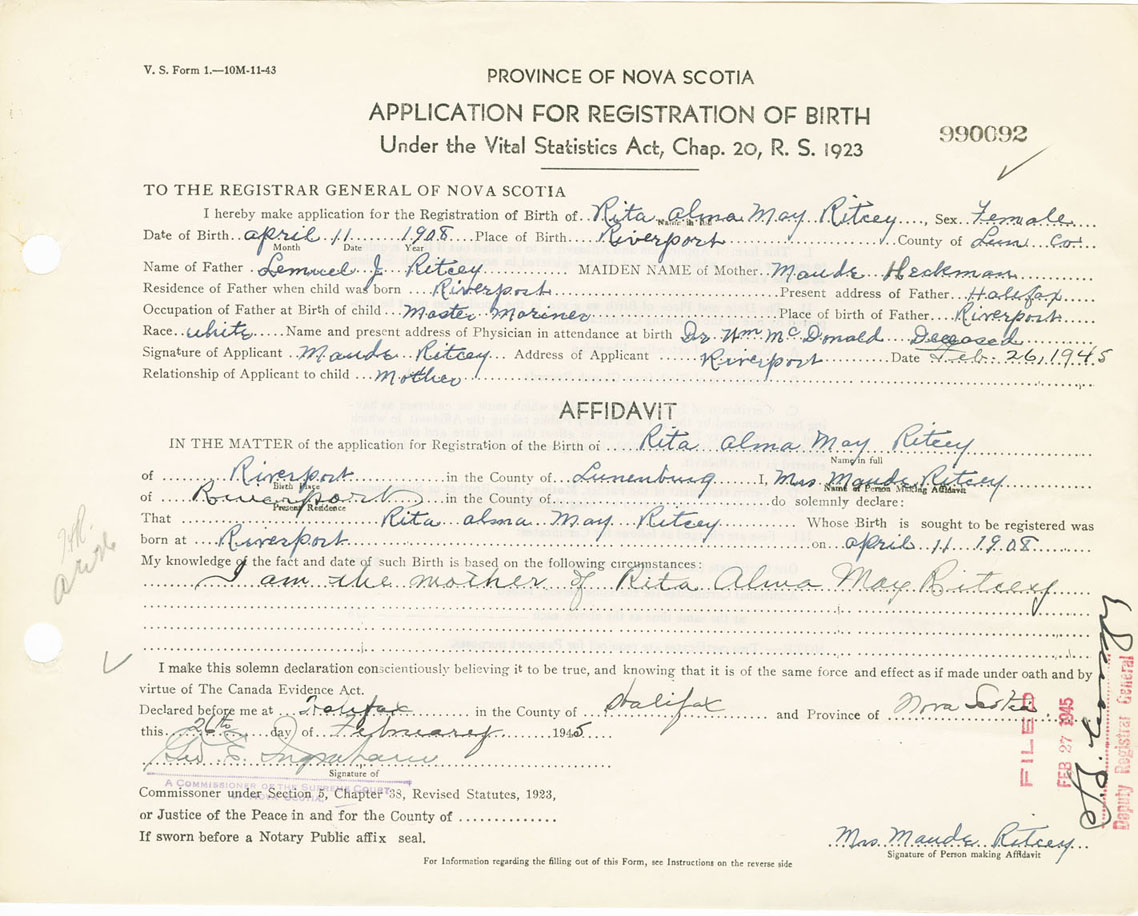 V. S. Form 1.—10M-11-43
PROVINCE OF NOVA SCOTIA
APPLICATION FOR REGISTRATION OF BIRTH
Under the Vital Statistics Act, Chap. 20, R. S. 1923
990092
TO THE REGISTRAR GENERAL OF NOVA SCOTIA
I hereby make application for the Registration of Birth of Rita Alma May Ritcey, Sex Female
Name in full
Date of Birth April 11 1908 Place of Birth Riverport County of Lun Co.
Month Date Year
Name of Father Lemuel J. Ritcey MAIDEN NAME of Mother Maude Heckman
Residence of Father when child was born Riverport Present address of Father Halifax
Occupation of Father at Birth of child Master Mariner Place of birth of Father Riverport
Race white Name and present address of Physician in attendance at birth Dr Wm McDonald Deceased
Signature of Applicant Maude Ritcey Address of Applicant Riverport Date Feb. 26, 1945
Relationship of Applicant to child Mother
AFFIDAVIT
IN THE MATTER of the application for Registration of the Birth of Rita Alma May Ritcey
Name in full
of Riverport in the County of Lunenburg I, Mrs Maude Ritcey
Birth Place Name of Person Making Affidavit
of Riverport in the County of do solemnly declare:
Present Residence
That Rita Alma May Ritcey Whose Birth is sought to be registered was
born at Riverport on April 11 1908
My knowledge of the fact and date of such Birth is based on the following circumstances:
I am the mother of Rita Alma May Ritcey
I make this solemn declaration conscientiously believing it to be true, and knowing that it is of the same force and effect as if made under oath and by
virtue of The Canada Evidence Act.
Declared before me at Halifax in the County of Halifax and Province of Nova Scotia
this 26th day of February 1945
Geo E. Ingraham
Signature of
A COMMISSIONER OF THE SUPREME COURT
OF NOVA SCOTIA
Commissoner under Section 5, Chapter 38, Revised Statutes, 1923,
or Justice of the Peace in and for the County of
If sworn before a Notary Public affix seal.
Mrs Maude Ritcey
Signature of Person making Affidavit
For Information regarding the filling out of this Form, see Instructions on the reverse side
FILED
FEB 27 1945
Deputy Registrar General